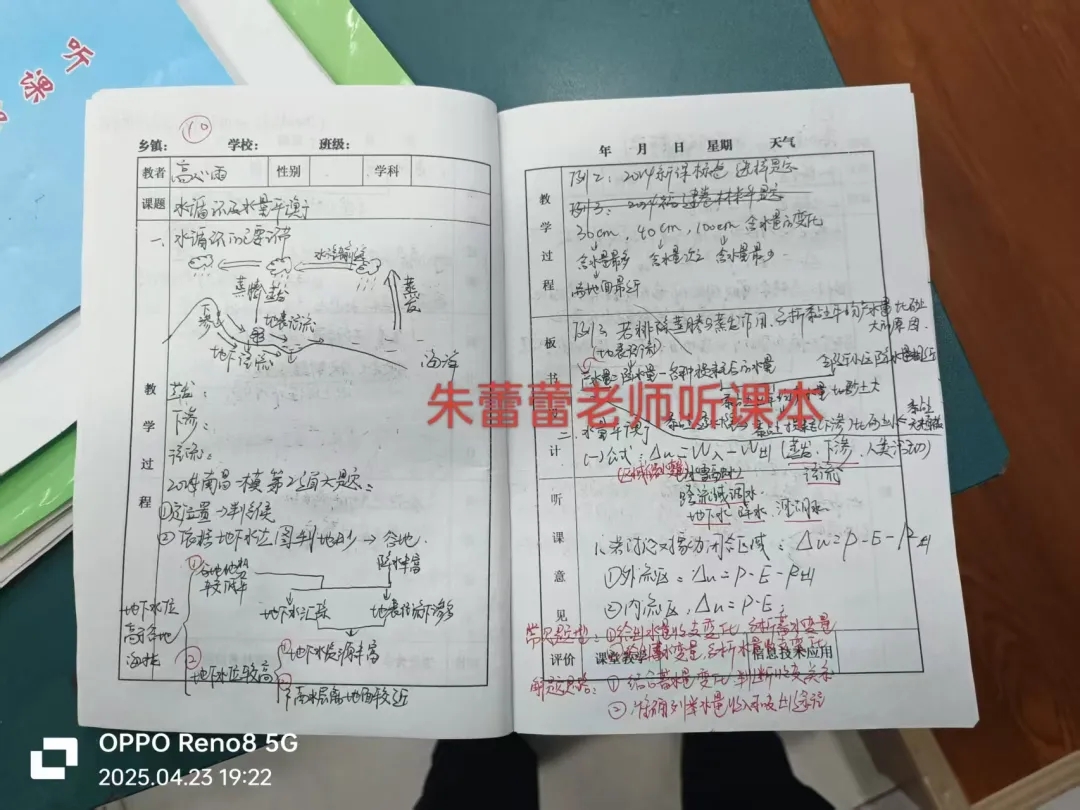 听课
10
乡镇: 学校: 班级:
教者 高小雨 性别 学科
课题 水循环及水量平衡
教学过程
一、水循环的主要环节
水汽输送
蒸腾 蒸发
蒸发
地表径流
地下径流
海洋
蒸发:
下渗:
径流:
2024南昌一模第25题大题:
①定位置→判气候
②依据地下水位图判地形→谷地.
①谷地地势较低平
降水丰富
地下水位高
地下水汇集
地表径流下渗多
②地下水位较高
①地下水资源丰富
②含水层离地面较近
年 月 日 星期 天气
教学过程
例2: 2024新课标卷 选择题
例3: 2024福建卷材料题
30cm, 40cm, 100cm 含水量的变化
含水量最多 含水量次之 含水量最少
离地面最近
板书设计
例3 若排除蒸腾与蒸发作用,分析黏土年均产水量比砂土大的原因.
(地表径流)
产水量=降水量-
朱蕾蕾老师听课本
二、水量平衡
(一)公式: Δu=W入-W出 (蒸发、下渗、人类活动)
径流
跨流域调水
地下水、降水、
听课意见
1.当讨论对象为闭合区域: Δu=P-E-R出
①外流区: Δu=P-E-R出
②内流区, Δu=P-E;
①给出水量收支变化,分析蓄水变量
评价 课堂教学 信息技术应用
解题思路: ①结合蓄水量变化,判断收支关系
②准确列举水量收入和支出途径
OPPO Reno8 5G
2025.04.23 19:22